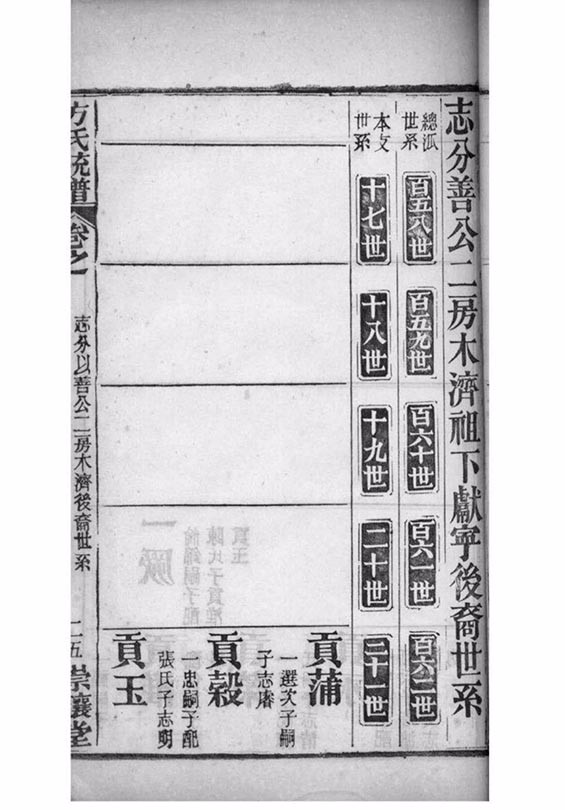 志分善公二房木濟祖下獻寧後裔世系
總派
世系
百五八世
百五九世
百六十世
百六一世
百六二世
本支
世系
十七世
十八世
十九世
二十世
二十一世
貢蒲
一選次子嗣
子志㵾
貢穀
一忠嗣子配
張氏子志明
貢玉
方氏統譜
卷之
志分以善公二房木濟後裔世系
二五
崇讓堂